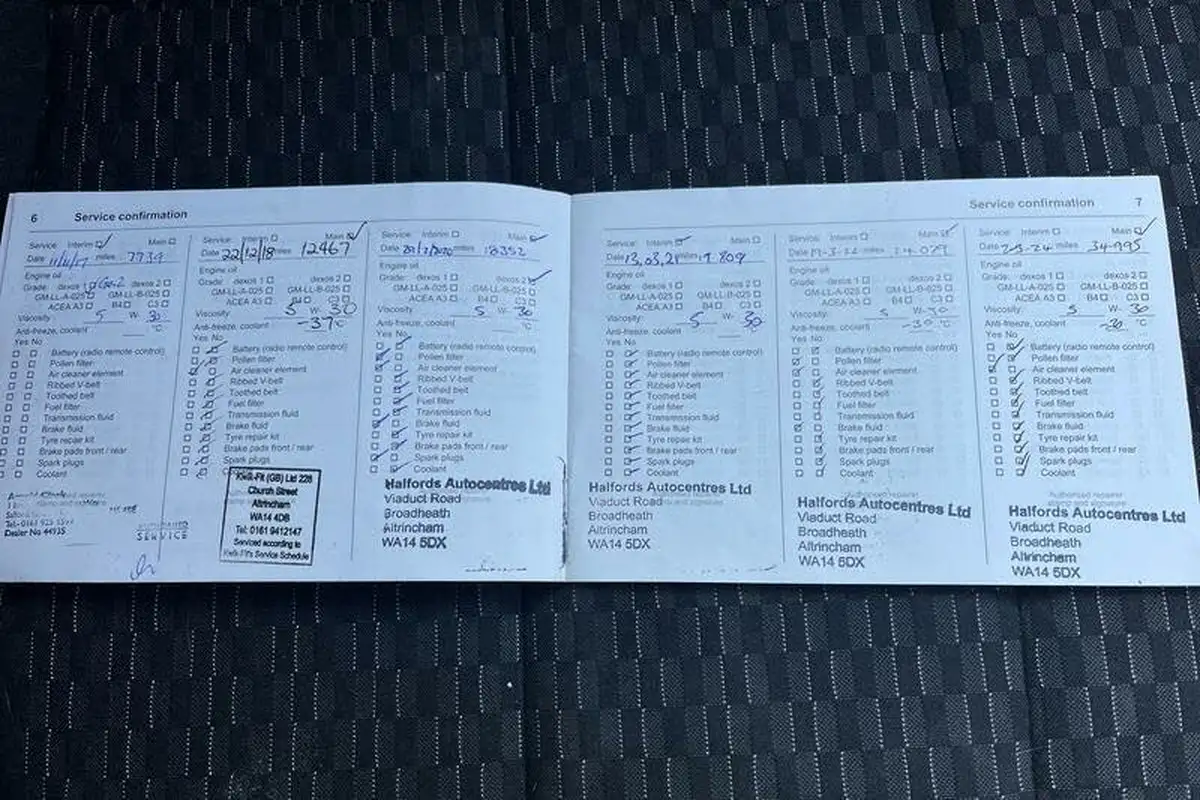 6 Service confirmation
Service: Interim Main
Date 11/11/17 miles 7739
Engine oil
Grade: dexos 1 dexos 2
GM-LL-A-025 GM-LL-B-025
ACEA A3 B4 C3
Viscosity 5 W- 30
Anti-freeze, coolant °C
Yes No
Battery (radio remote control)
Pollen filter
Air cleaner element
Ribbed V-belt
Toothed belt
Fuel filter
Transmission fluid
Brake fluid
Tyre repair kit
Brake pads front / rear
Spark plugs
Coolant
Dealer No 44935
SERVICE
Service: Interim Main
Date 22/12/18 miles 12467
Engine oil
Grade: dexos 1 dexos 2
GM-LL-A-025 GM-LL-B-025
ACEA A3 B4 C3
Viscosity 5 W- 30
Anti-freeze, coolant -37°C
Yes No
Battery (radio remote control)
Pollen filter
Air cleaner element
Ribbed V-belt
Toothed belt
Fuel filter
Transmission fluid
Brake fluid
Tyre repair kit
Brake pads front / rear
Spark plugs
Kwik-Fit (GB) Ltd 228
Church Street
Altrincham
WA14 4DB
Tel: 0161 9412147
Serviced according to
Kwik-Fit's Service Schedule
Service: Interim Main
Date miles 18352
Engine oil
Grade: dexos 1 dexos 2
GM-LL-A-025 GM-LL-B-025
ACEA A3 B4 C3
Viscosity 5 W- 30
Anti-freeze, coolant °C
Yes No
Battery (radio remote control)
Pollen filter
Air cleaner element
Ribbed V-belt
Toothed belt
Fuel filter
Transmission fluid
Brake fluid
Tyre repair kit
Brake pads front / rear
Spark plugs
Coolant
Halfords Autocentres Ltd
Viaduct Road
Broadheath
Altrincham
WA14 5DX
Service confirmation 7
Service: Interim Main
Date 13,03,21 miles 19809
Engine oil
Grade: dexos 1 dexos 2
GM-LL-A-025 GM-LL-B-025
ACEA A3 B4 C3
Viscosity: 5 W- 30
Anti-freeze, coolant °C
Yes No
Battery (radio remote control)
Pollen filter
Air cleaner element
Ribbed V-belt
Toothed belt
Fuel filter
Transmission fluid
Brake fluid
Tyre repair kit
Brake pads front / rear
Spark plugs
Coolant
Halfords Autocentres Ltd
Viaduct Road
Broadheath
Altrincham
WA14 5DX
Service: Interim Main
Date 19-3-22 miles 24079
Engine oil
Grade: dexos 1 dexos 2
GM-LL-A-025 GM-LL-B-025
ACEA A3 B4 C3
Viscosity 5 W-30
Anti-freeze, coolant -30 °C
Yes No
Battery (radio remote control)
Pollen filter
Air cleaner element
Ribbed V-belt
Toothed belt
Fuel filter
Transmission fluid
Brake fluid
Tyre repair kit
Brake pads front / rear
Spark plugs
Coolant
Halfords Autocentres Ltd
Viaduct Road
Broadheath
Altrincham
WA14 5DX
Service: Interim Main
Date 2-5-24 miles 34-995
Engine oil
Grade: dexos 1 dexos 2
GM-LL-A-025 GM-LL-B-025
ACEA A3 B4 C3
Viscosity 5 W- 30
Anti-freeze, coolant -30 °C
Yes No
Battery (radio remote control)
Pollen filter
Air cleaner element
Ribbed V-belt
Toothed belt
Fuel filter
Transmission fluid
Brake fluid
Tyre repair kit
Brake pads front / rear
Spark plugs
Coolant
Halfords Autocentres Ltd
Viaduct Road
Broadheath
Altrincham
WA14 5DX